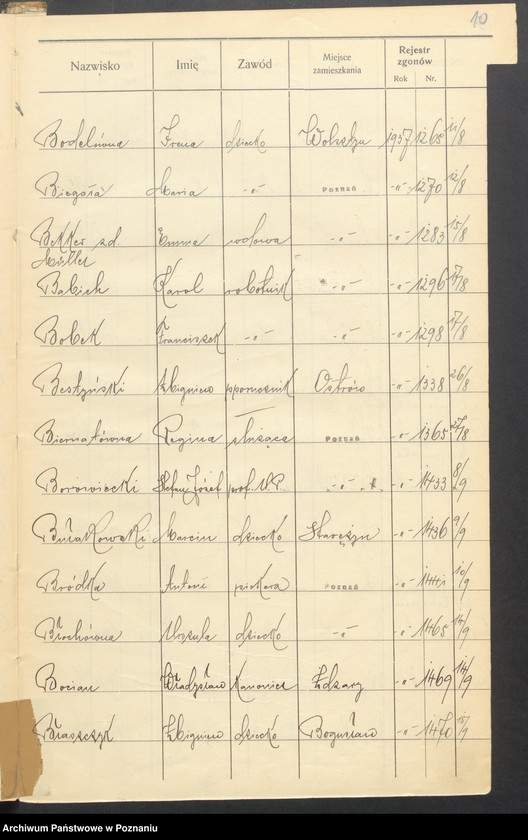 10
Nazwisko Imię Zawód Miejsce zamieszkania Rejestr zgonów
Rok Nr.
Bodelówna Irena dziecko 1937 1265 11/8
Biegała Maria -"- POZNAŃ -"- 1270 12/8
Bekker zd. Emma wdowa -"- -"- 1283 15/8
Müller
Babich Karol robotnik -"- -"- 1296 17/8
Bobek Franciszek -"- -"- -"- 1298 17/8
Zbigniew pporucznik Ostrów -"- 1338 26/8
Biernatówna Regina służąca POZNAŃ -"- 1365 27/8
Borowiecki Stefan Józef prof. -"- -"- 1433 8/9
Bułakowski Marcin dziecko -"- 1436 9/9
Bródka Antoni POZNAŃ -"- 10/9
Urszula dziecko -"- -"- 1465 14/9
Bocian Władysław Łdzary -"- 1469 14/9
Błaszczyk Zbigniew dziecko Bogusław -"- 1470 15/9
Archiwum Państwowe w Poznaniu